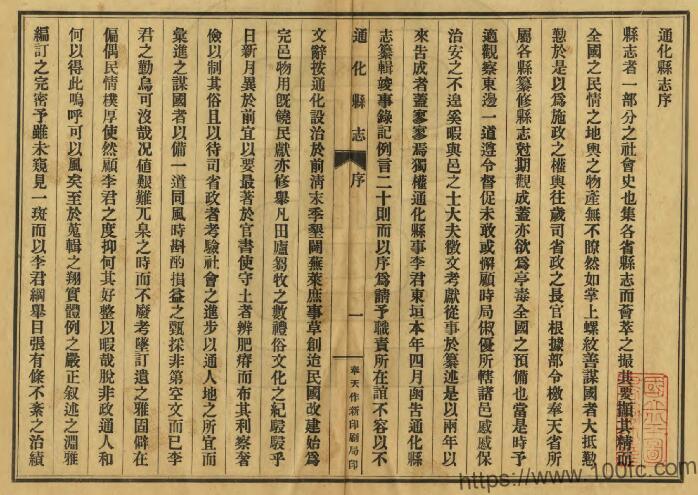 通化縣志序
縣志者一部分之社會史也集各省縣志而薈萃之撮其要擷其精而
全國之民情之地輿之物產無不瞭然如掌上螺紋善謀國者大抵懃
懃於是以爲施政之權輿往歲司省政之長官根據部令檄奉天省所
屬各縣纂修縣志尅期觀成蓋亦欲爲亭毒全國之預備也當是時予
適觀察東邊一道遵令督促未敢或懈顧時局俶擾所轄諸邑戚戚保
治安之不遑奚暇與邑之士大夫徵文考獻從事於纂述是以兩年以
來告成者蓋寥寥焉獨權通化縣事李君東垣本年四月函告通化縣
志纂輯竣事錄記例言二十則而以序爲請予職責所在誼不容以不
通化縣志
序
一
奉天作新印刷局印
文辭按通化設治於前清末季墾闢蕪萊庶事草創造民國改建始爲
完邑物用旣饒民獻亦修舉凡田廬芻牧之數禮俗文化之紀駸駸乎
日新月異於前宜以要最著於官書使守土者辨肥瘠而布其利察奢
儉以制其俗且以待司省政者考驗社會之進步以通人地之所宜而
彙進之謀國者以備一道同風時斟酌損益之甄採非第空文而已李
君之勤烏可沒哉况値艱難兀臬之時而不廢考墜訂遺之雅固僻在
偏隅民情樸厚使然顧李君之度抑何其好整以暇哉脫非政通人和
何以得此嗚呼可以風矣至於蒐輯之翔實體例之嚴正叙述之淵雅
編訂之完密予雖未窺見一斑而以李君綱舉目張有條不紊之治績
https://www.100fc.com